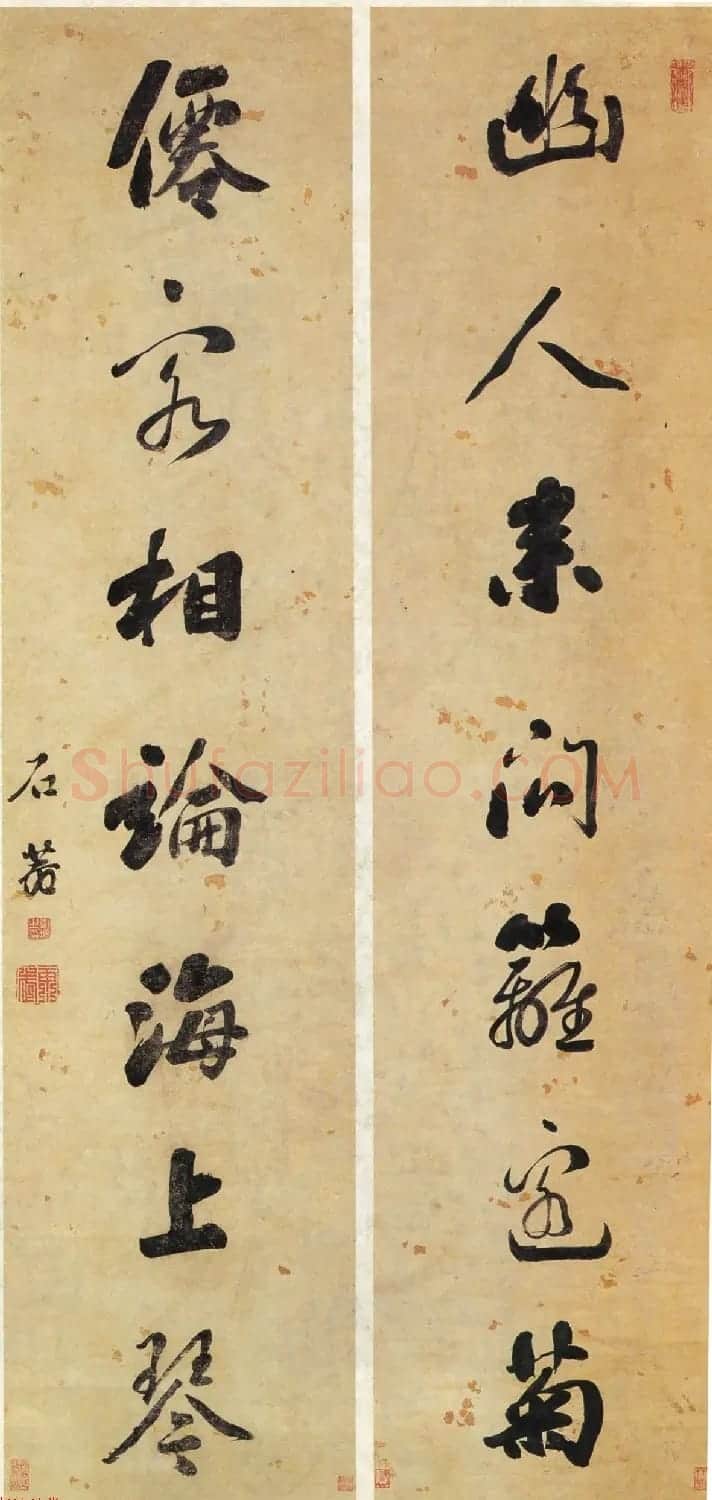 幽人來問籬邊菊
僊客相論海上琴
石菴
Shufaziliao.COM